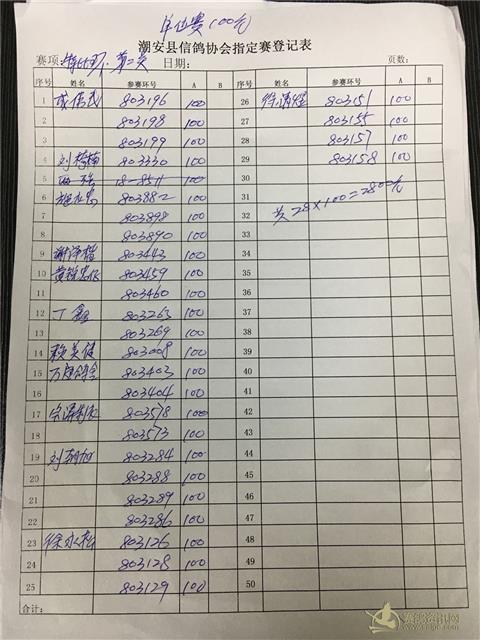 单位赛100元
潮安县信鸽协会指定赛登记表
赛项: 特比环·第二关 日期: 页数:
序号 姓名 参赛环号 A B 序号 姓名 参赛环号 A B
1 803196 100 26 803151 100
2 803198 100 27 803155 100
3 803199 100 28 803157 100
4 刘楷楠 803330 100 29 803158 100
5 18-8511 100 30
6 803882 100 31
7 803898 100 32 共28×100=2800元
8 803890 100 33
9 谢泽楷 803443 100 34
10 803459 100 35
11 803460 100 36
12 丁鑫 803263 100 37
13 803269 100 38
14 赖英健 803008 100 39
15 803403 100 40
16 803404 100 41
17 803578 100 42
18 803573 100 43
19 803284 100 44
20 803288 100 45
21 803289 100 46
22 803286 100 47
23 徐永松 803126 100 48
24 803128 100 49
25 803129 100 50
合计: